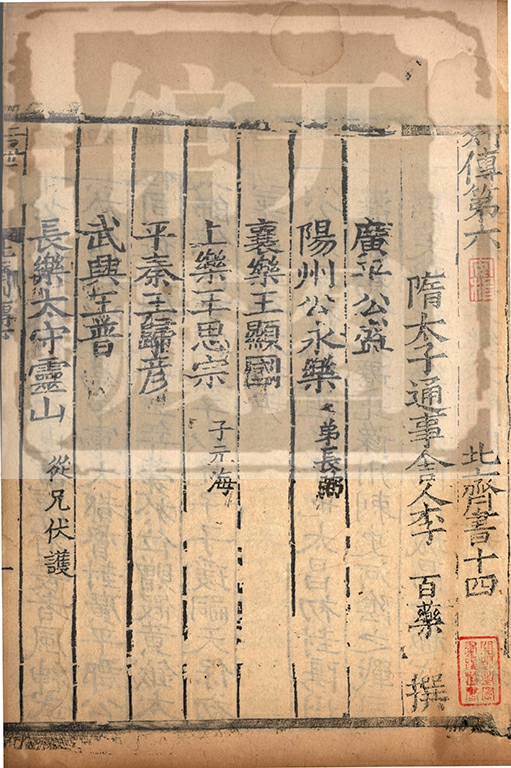 列傳第六 北齊書十四
隋太子通事舍人李 百藥 撰
廣平公盛
陽州公永樂 弟長弼
襄樂王顯國
上樂王思宗 子元海
平秦王歸彦
武興王普
長樂太守靈山 從兄伏護